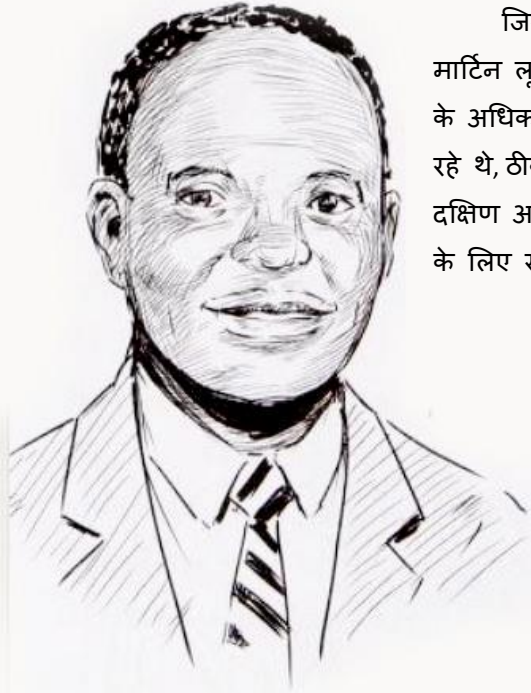 जि
मार्टिन लू
के अधिक
रहे थे, ठी
दक्षिण अ
के लिए स